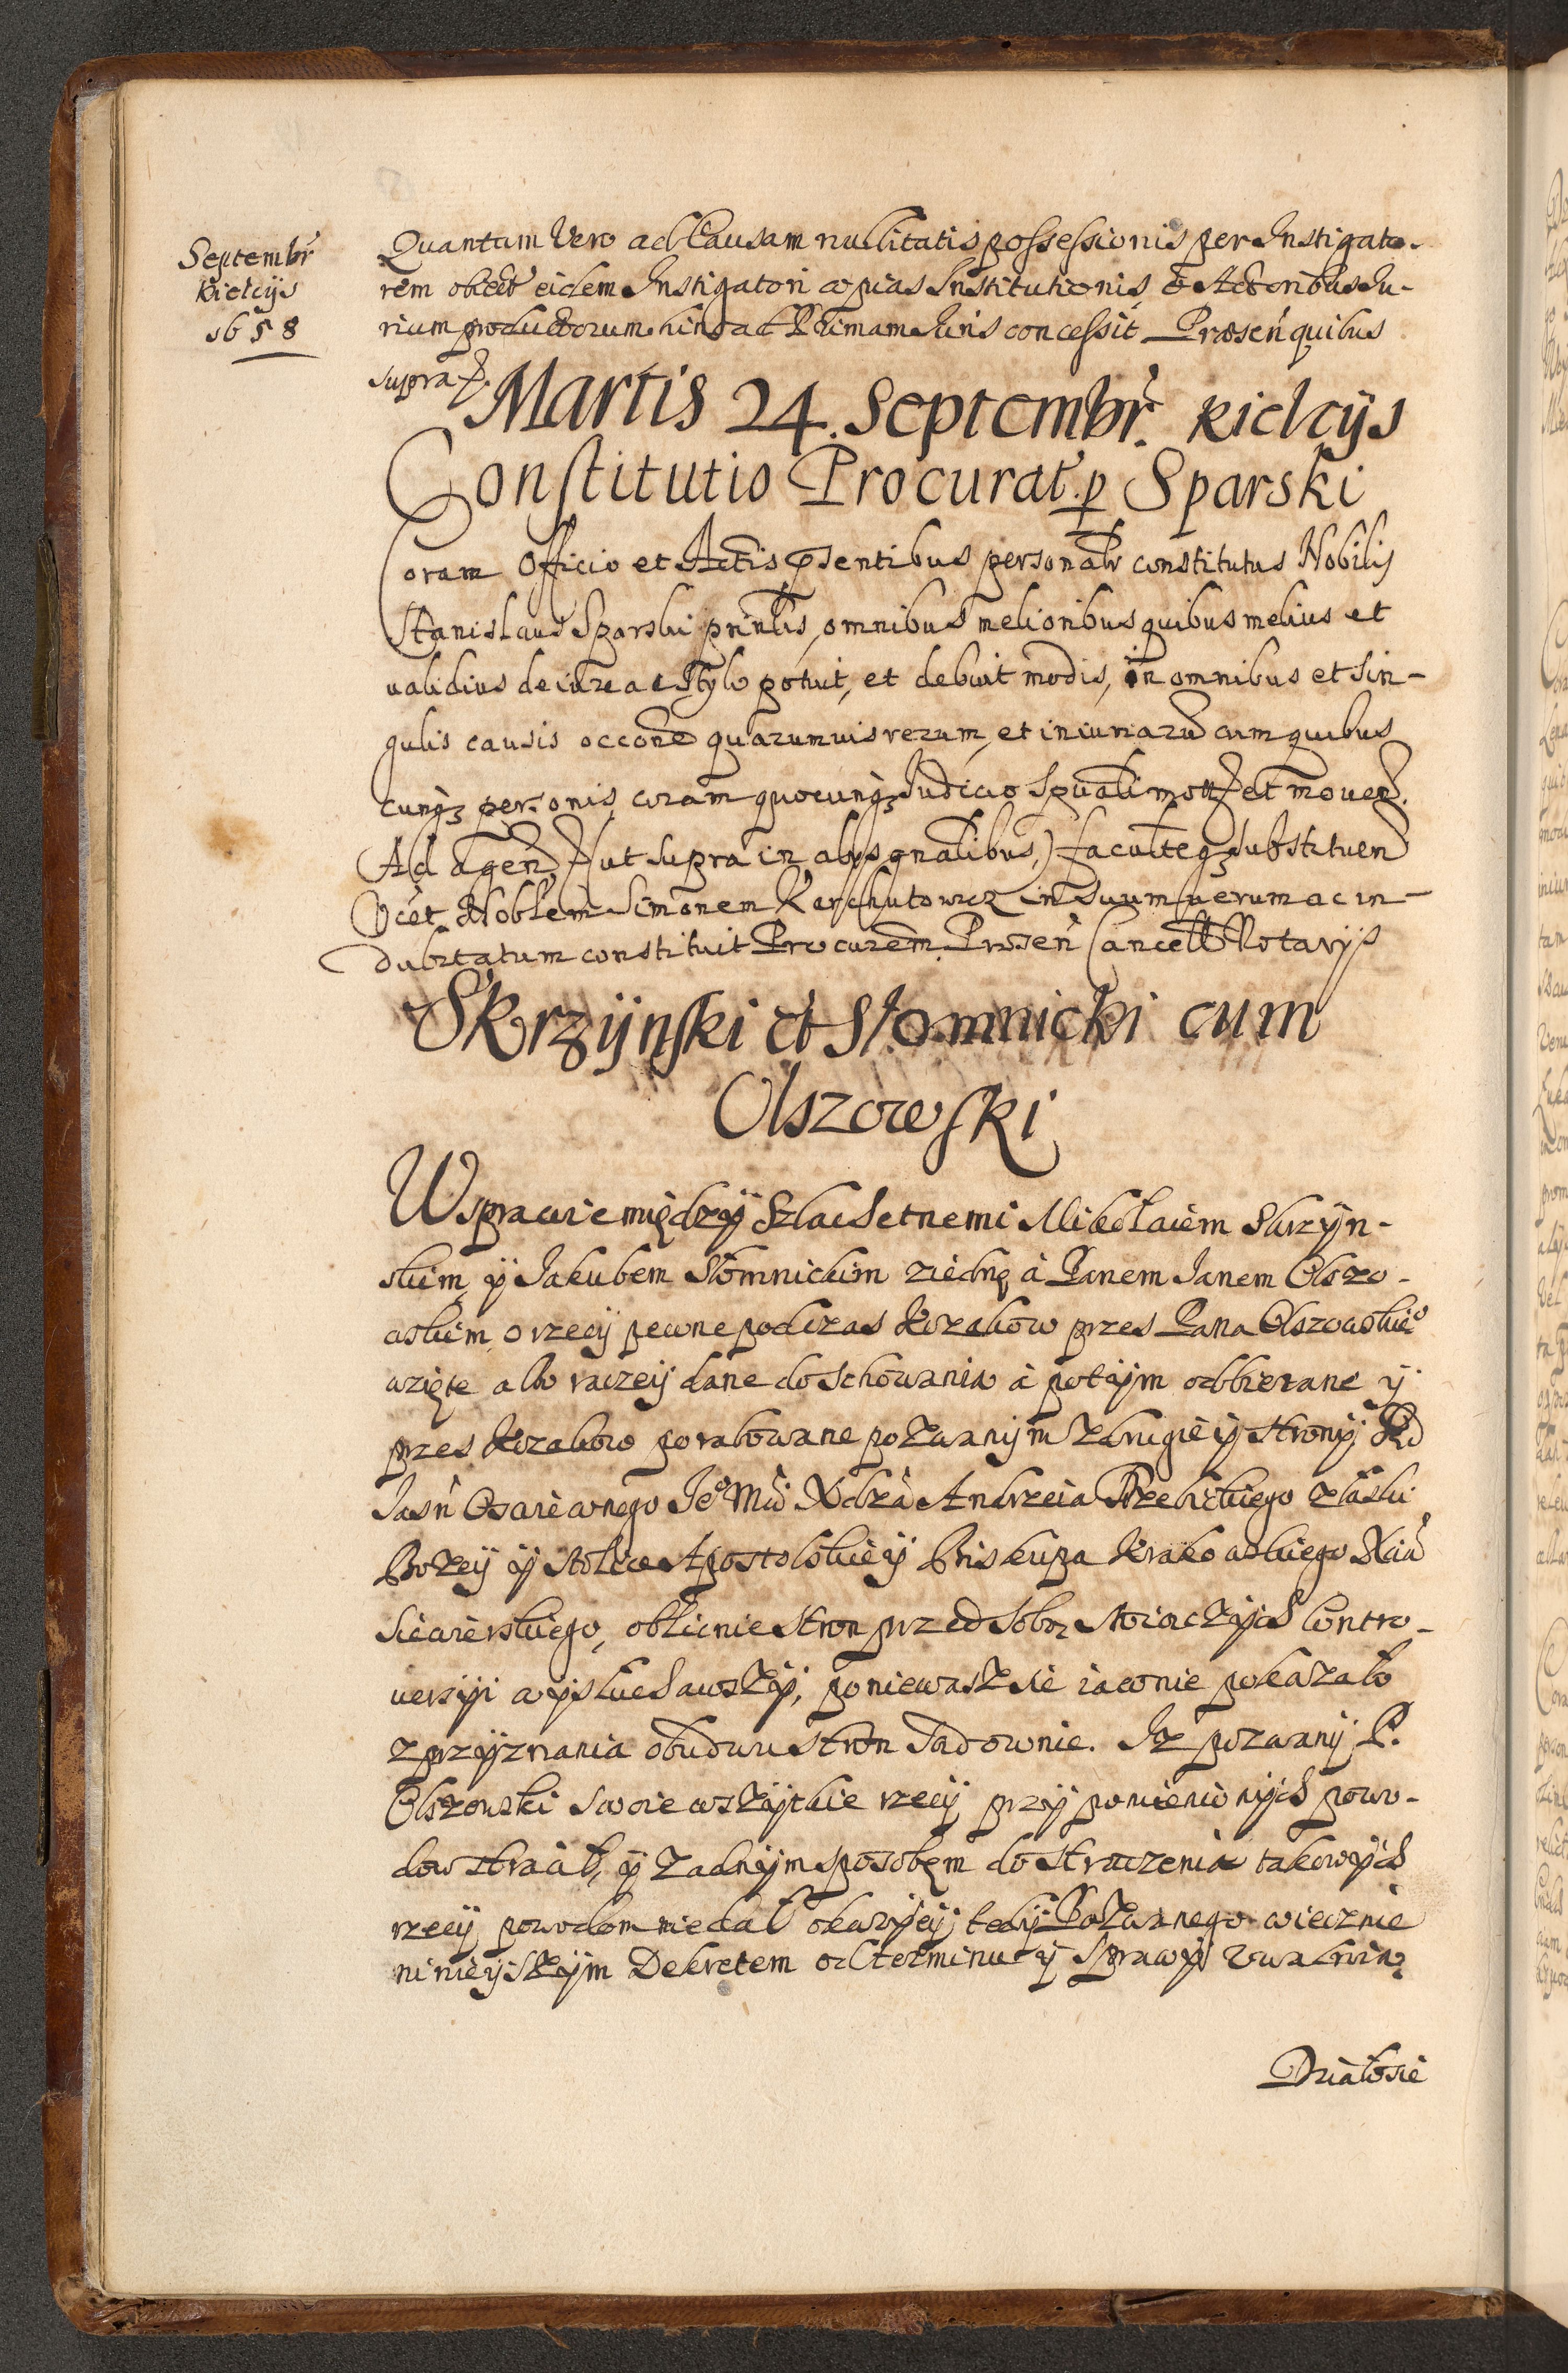 Septembr
Kielcijs
1658
Quantum Vero ad Causam nullitatis possessionis per Instigato-
rem obiect eidem Instigatori copias Institutionis ab Actoribus Iu-
rium productorum hinc ad Primam Iuris concessit Præsen quibus
supra
Martis 24. Septembr. Kielcijs
Constitutio Procurat. p Sparski
Coram Officio et Actis psentibus personalr constitutus Nobilis
Stanislaus Sparski prinlis, omnibus melioribus quibus melius et
validius de iure ac stylo potuit, et debuit modis, in omnibus et sin-
gulis causis occone quarumvis rerum, et iniuriaru cum quibus
cunqz personis, coram quocunqz Iudicio Spuali mott et mouen.
Ad agen (ut supra in alys gnalibus,) faculteqz substituen
Ocet Noblem Simonem Karchutowicz in suum verum ac in-
dubitatum constituit Procurem. Præsen Cancell Notarijs
Skrzijnski et Słomnicki cum
Olszowski
W sprawie między Szlachetnemi Mikołaiem Skrzijn-
skiem, ij Iakubem Słomnickim ziedne à Panem Ianem Olszo-
wskiem, o rzeczij pewne podczas Kozakow przes Pana Olszowskie°
wzięte albo raczeij dane do schowania à potijm odbierane ij
przes Kozakow porabowane pozwanijm z drugieij stronij. Sąd
Iasn Oswieconego Ie° Mci Xdza Andrzeia Trzebickiego z łaski
Bozeij ij Stolice Apostolskieij Biskupa Krakowskiego Xcia
Siewierskiego, oblicnie stron przed sobą stoiaczijch contro-
uersiji wijsłuchawszij, poniewasz sie iawnie pokazało
z przijznania obudwu stron Sadownie. Iz pozwanij P.
Olszowski swoie wszijtkie rzeczij przij pomienionijch powo-
dow stracił, ij zadnijm sposobem do straczenia takowijch
rzeczij powodom nie dał okazijeij, tedij Pozwanego wiecznie
ninieijszijm Dekretem od terminu ij Sprawij vwalnia
Działo sie